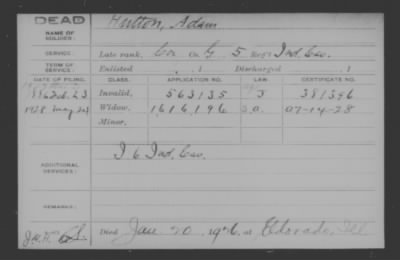 DEAD
NAME OF SOLDIER: Hutton, Adam
SERVICE: Late rank, Co. G, 5 Reg't Ind. Cav.
TERM OF SERVICE: Enlisted , 1 Discharged , 1
DATE OF FILING. CLASS. APPLICATION NO. LAW. CERTIFICATE NO.
Invalid, 563135 J 381396
1928 May 24 Widow, 1616196 07-14-28
Minor,
ADDITIONAL SERVICES: I 6 Ind. Cav.
REMARKS:
Died Jan. 20, 1926, at Eldorado, Ill